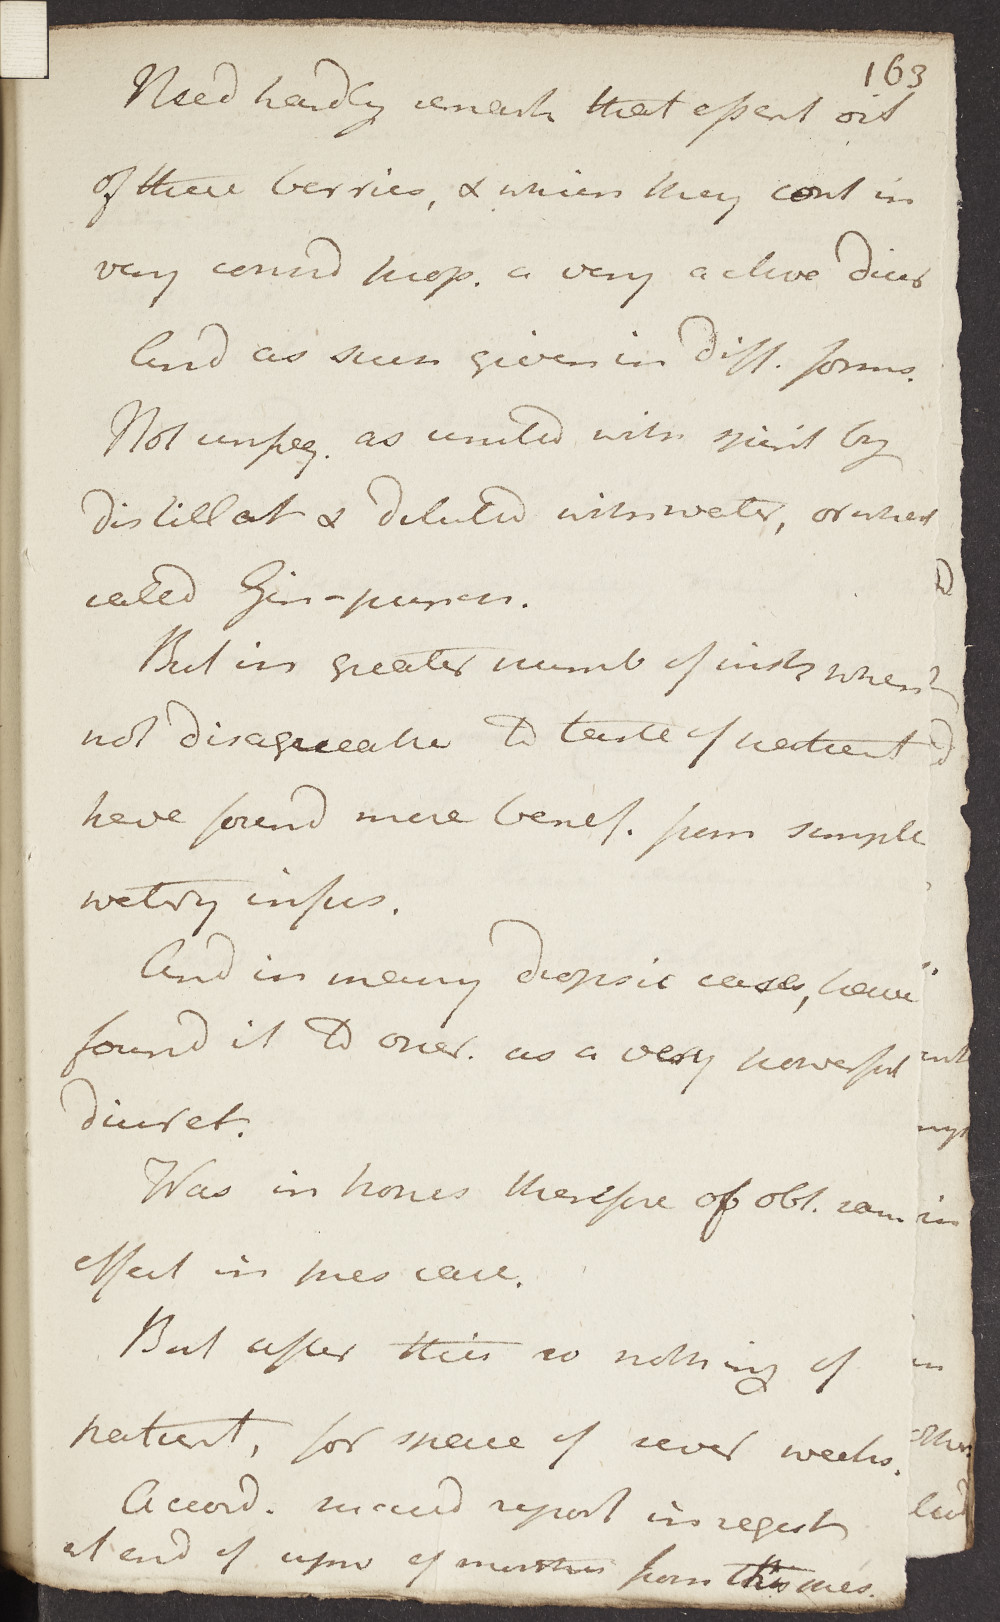 163
Need hardly remark that essent oil
of these berries, & which they cont in
very consid prop. a very active diur
And as such given in diff. forms.
Not unfreq. as united with spirit by
distillat & diluted with water, or what
called Gin-punch.
But in greater numb of insts when
not disagreeable to taste of patient
have found more benef. from simple
watery infus.
And in many dropsic cases, have
found it to oper. as a very powerful
diuret.
Was in hopes therefore of obt. sam
effect in pres case.
But after this so nothing of
patient, for space of sever weeks.
Accord. made report in regist
at end of upw of month from this pres.